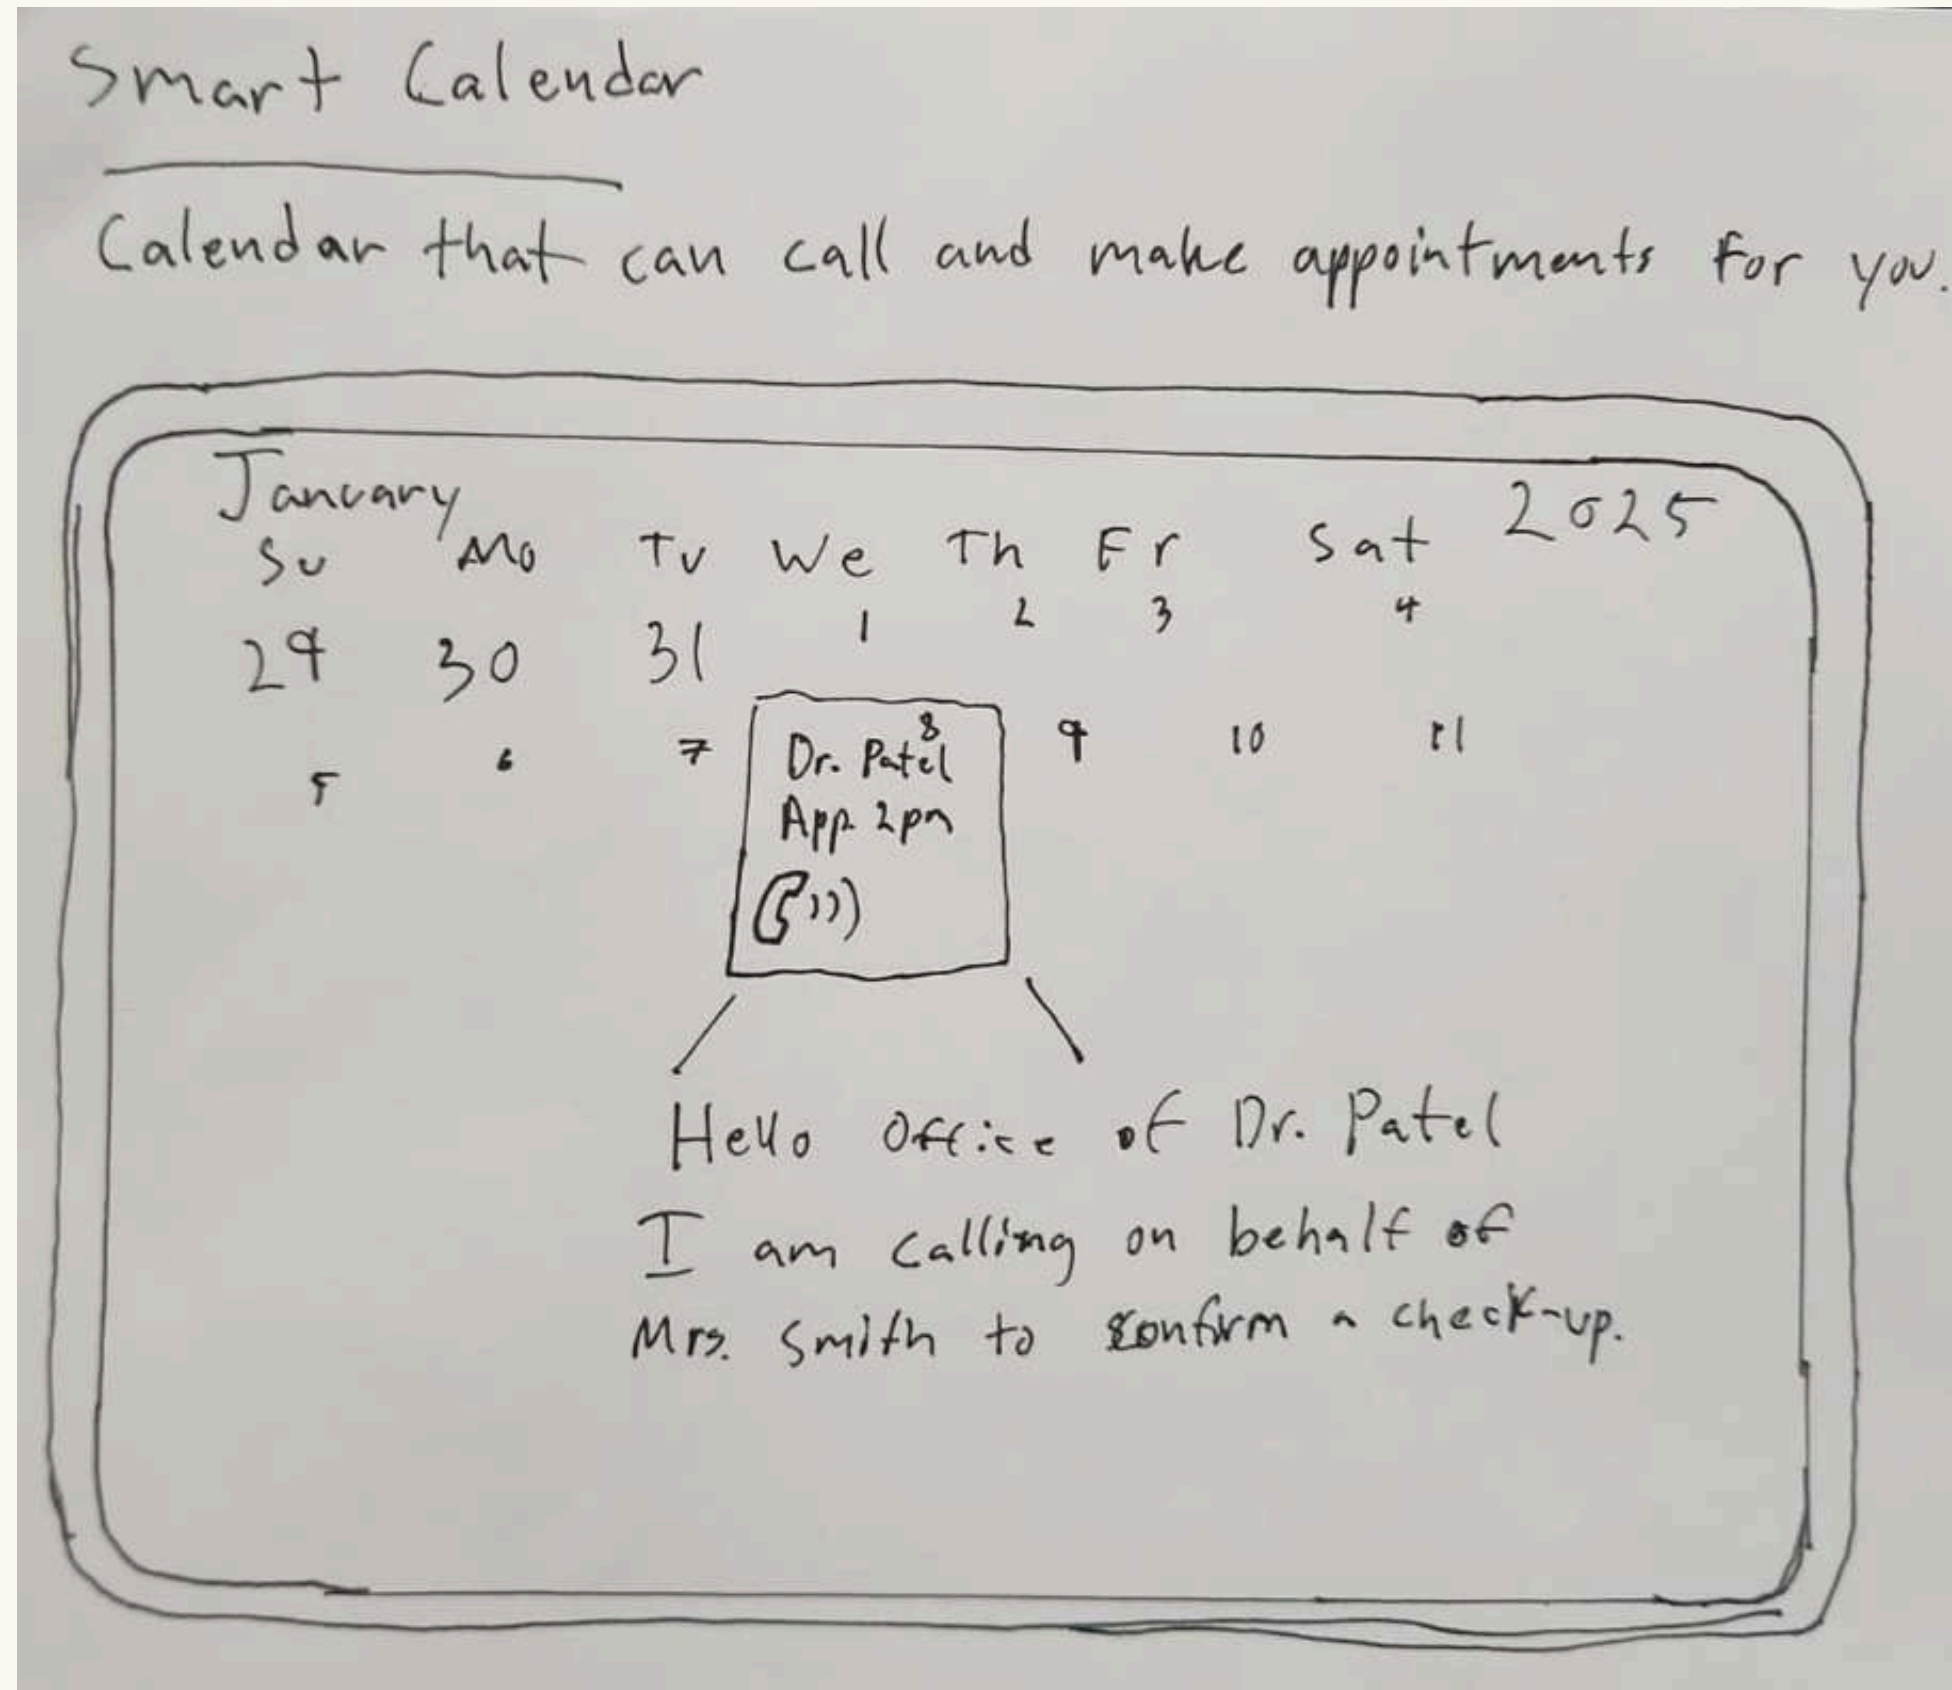 Smart Calendar
Calendar that can call and make appointments for you.
January 2025
Su Mo Tu We Th Fr Sat
29 30 31 1 2 3 4
5 6 7 8 9 10 11
Dr. Patel
App. 2pm
Hello Office of Dr. Patel
I am calling on behalf of
Mrs. Smith to confirm a check-up.